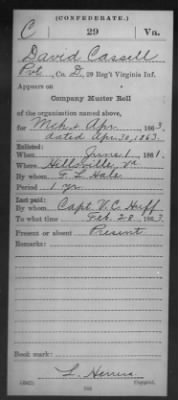 (CONFEDERATE.)
C 29 Va.
David Cassell
Pvt., Co. D, 29 Reg't Virginia Inf.
Appears on
Company Muster Roll
of the organization named above,
for Mch & Apr, 1863.
dated Apr. 30, 1863.
Enlisted:
When June 1, 1861.
Where Hillsville, Va
By whom F. L. Hale
Period 1 yr.
Last paid:
By whom Capt. V. C. Huff
To what time Feb. 28, 1863.
Present or absent Present
Remarks:
Book mark:
(642) Copyist.